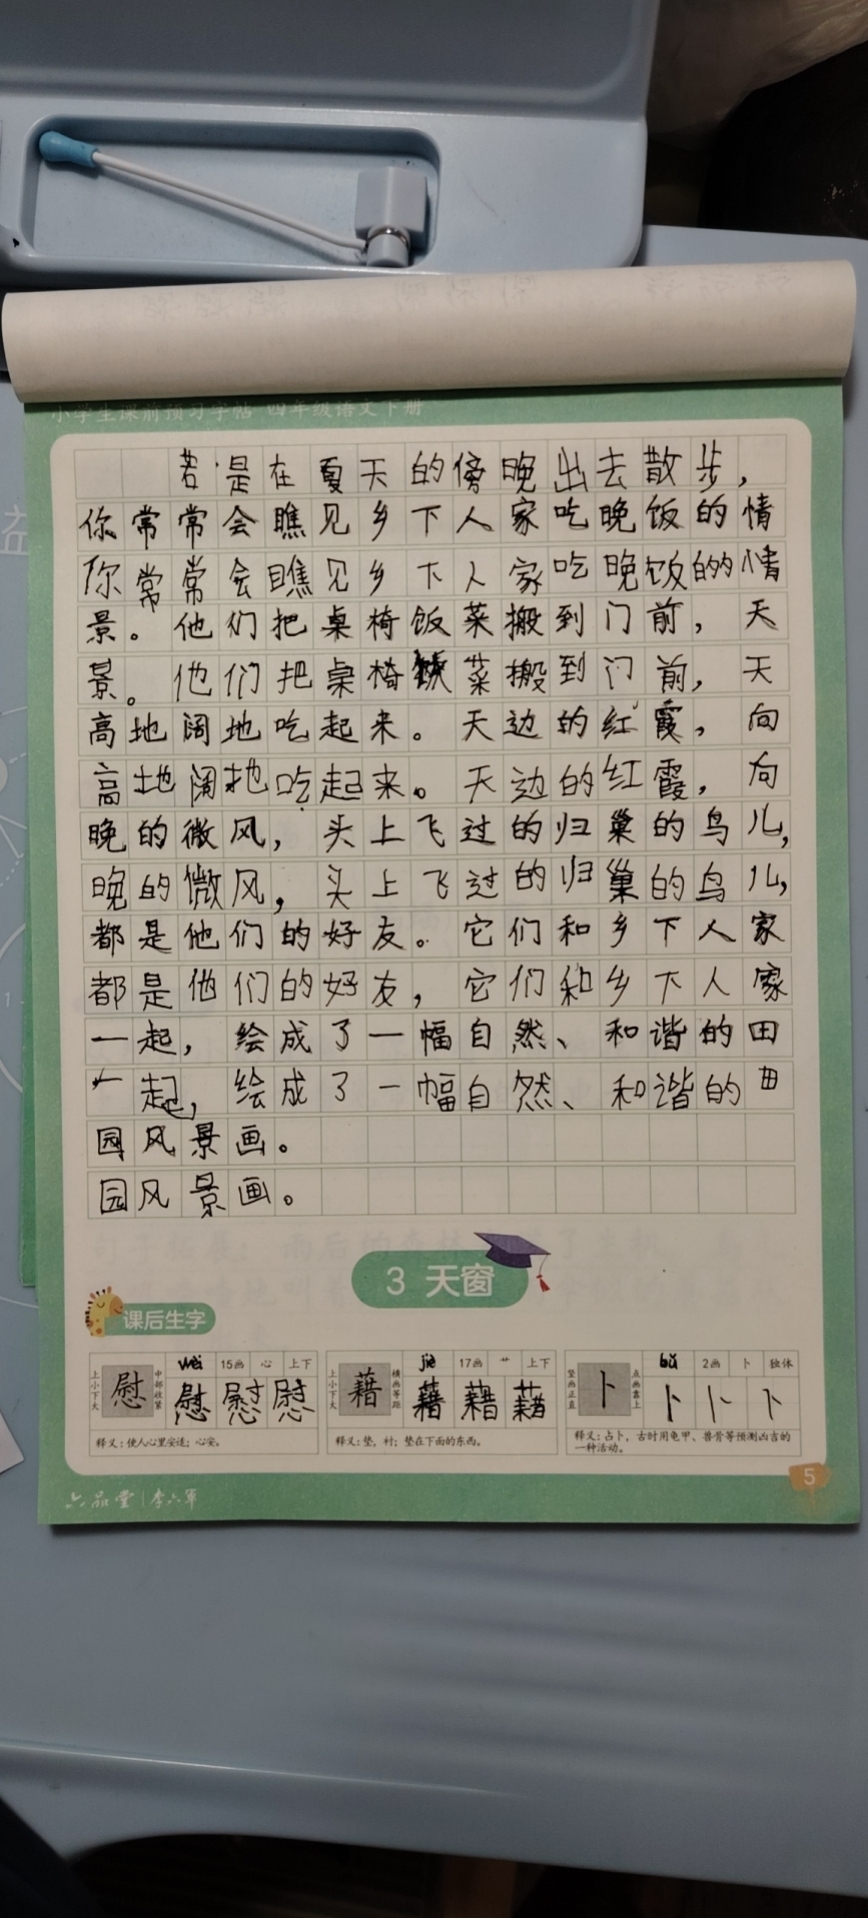 小学生课前预习字帖 四年级语文下册
若是在夏天的傍晚出去散步，
你常常会瞧见乡下人家吃晚饭的情
你常常会瞧见乡下人家吃晚饭的情
景。他们把桌椅饭菜搬到门前，天
景。他们把桌椅饭菜搬到门前，天
高地阔地吃起来。天边的红霞，向
高地阔地吃起来。天边的红霞，向
晚的微风，头上飞过的归巢的鸟儿，
晚的微风，头上飞过的归巢的鸟儿，
都是他们的好友。它们和乡下人家
都是他们的好友，它们和乡下人家
一起，绘成了一幅自然、和谐的田
一起，绘成了一幅自然、和谐的田
园风景画。
园风景画。
3 天窗
课后生字
上小下大 慰 中部收紧 wèi 15画 心 上下
慰 慰 慰
释义：使人心里安适；心安。
上小下大 藉 横画等距 jiè 17画 艹 上下
藉 藉 藉
释义：垫，衬；垫在下面的东西。
竖画正直 卜 点画靠上 bǔ 2画 卜 独体
卜 卜 卜
释义：占卜，古时用龟甲、兽骨等预测凶吉的
一种活动。
六品堂 李六军
5